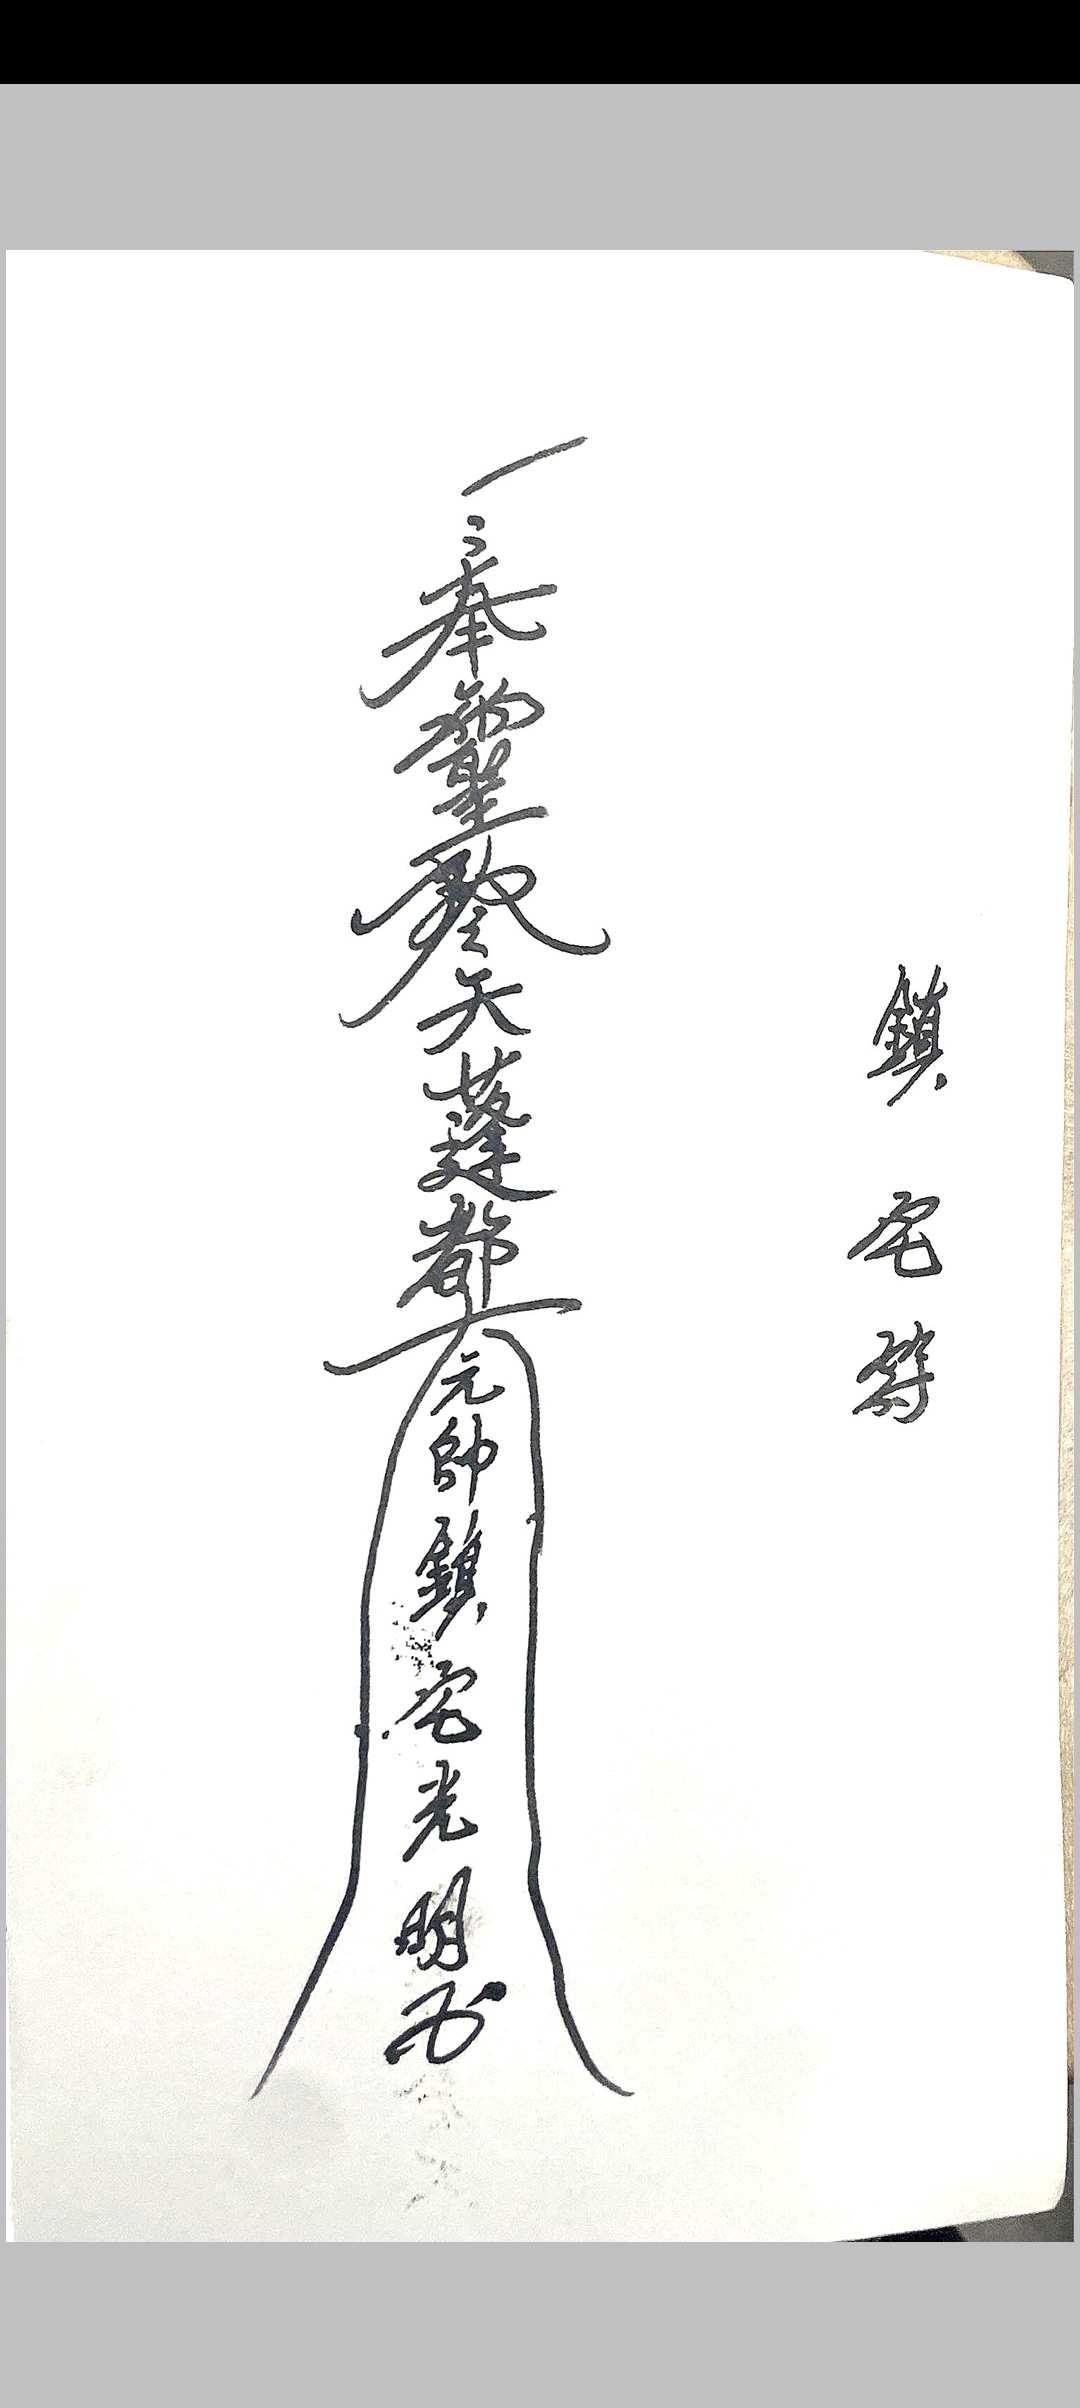 鎮宅符
奉
聖
天蓬都
元帥鎮宅光明